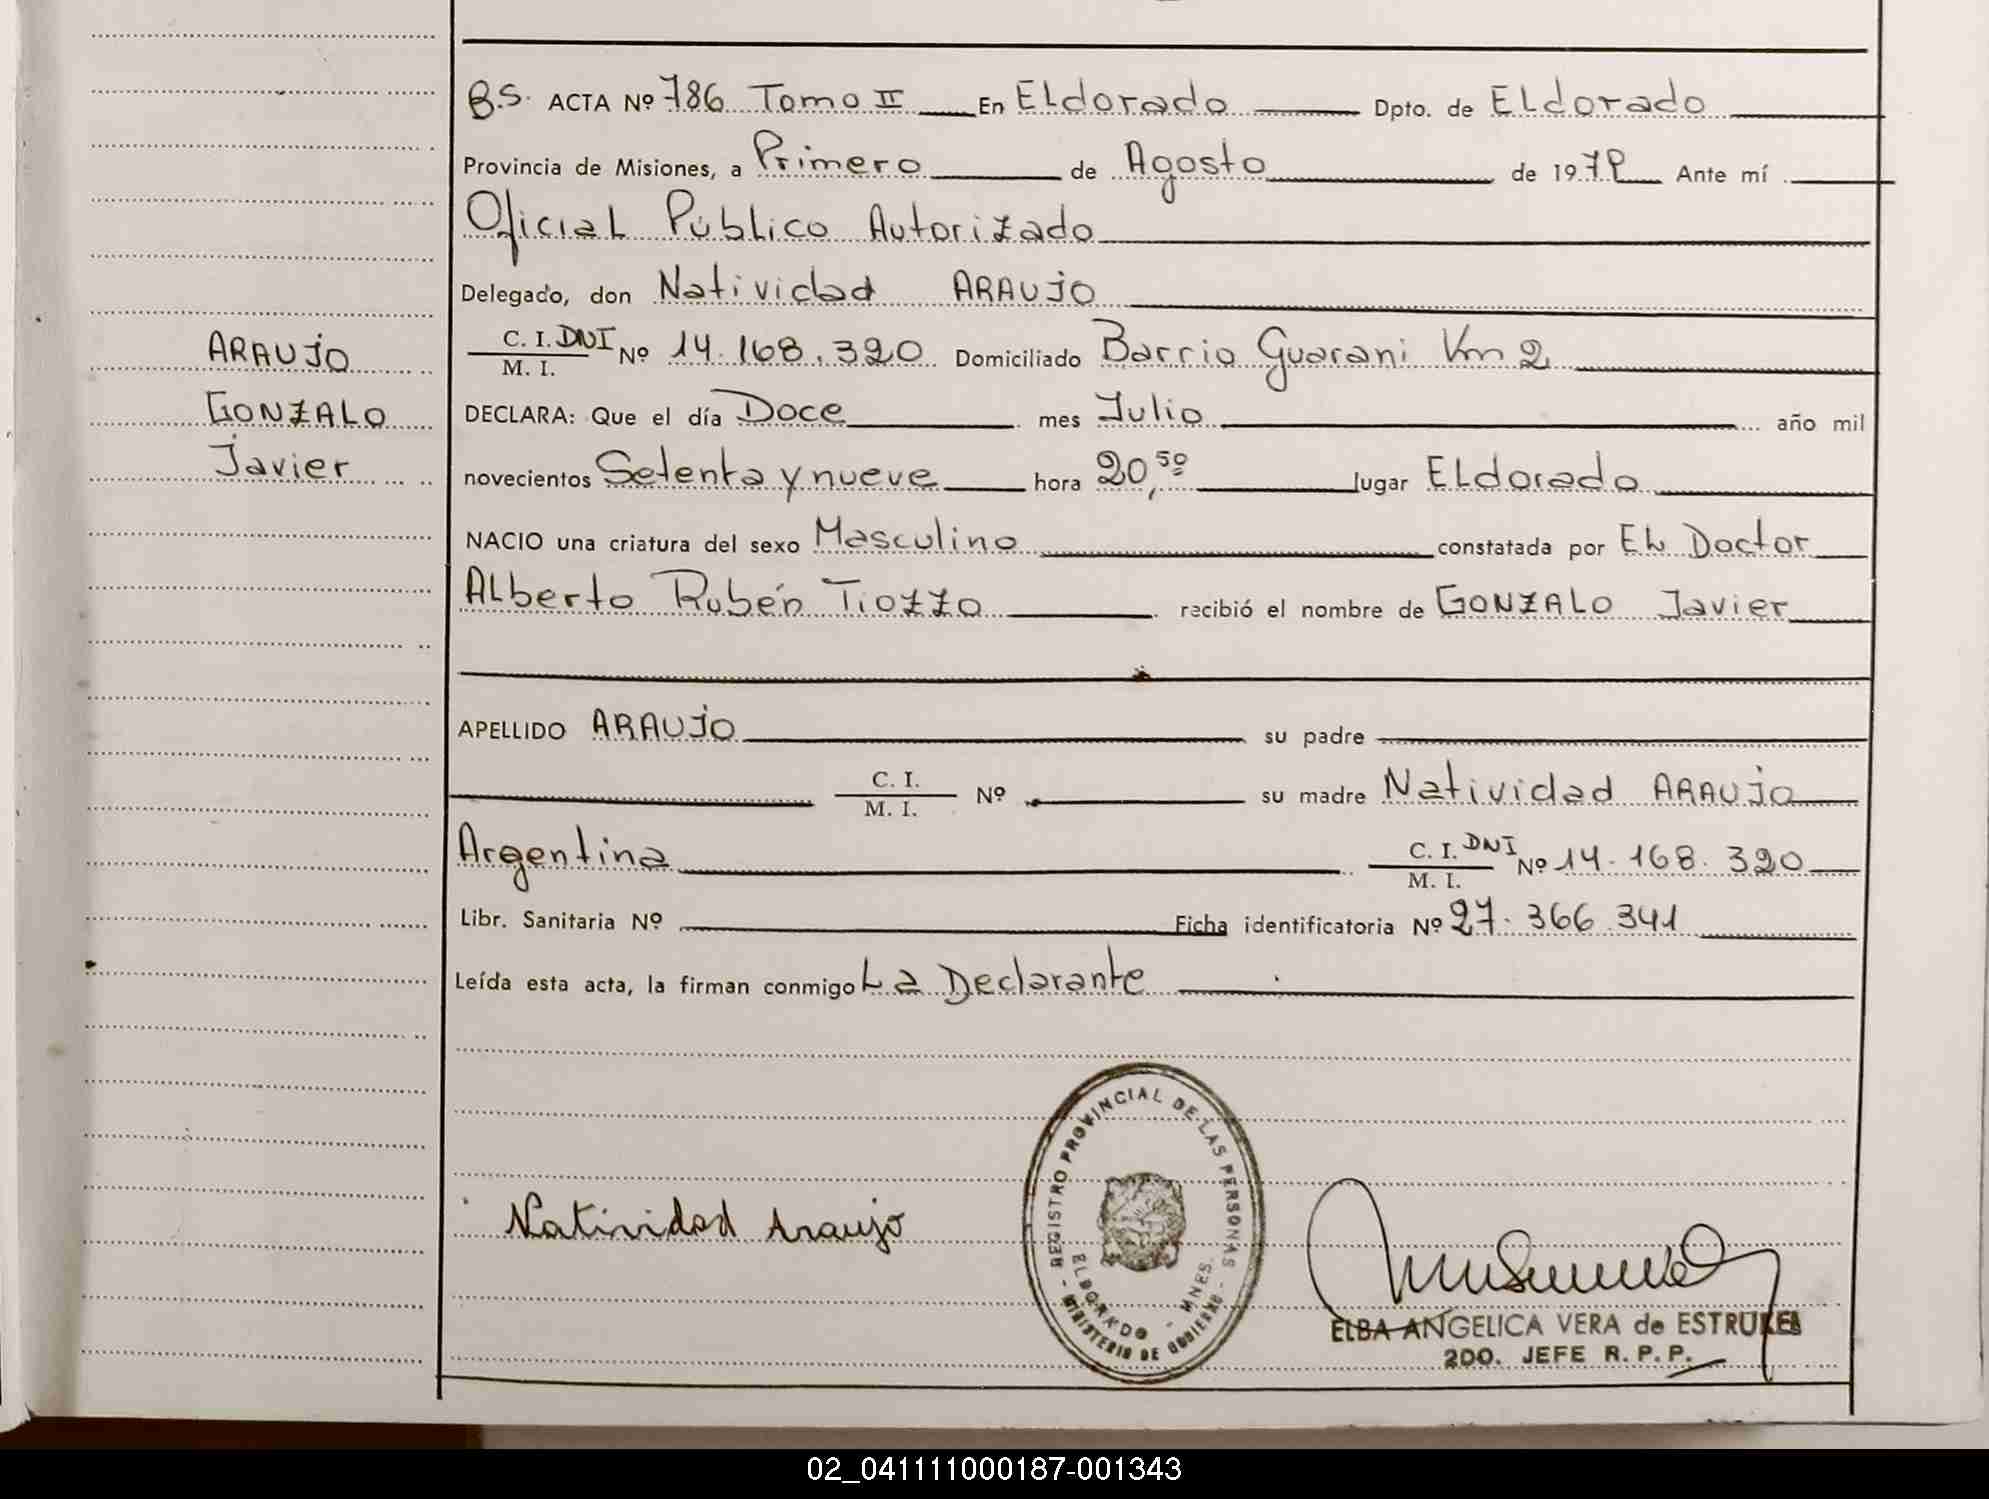 B.S. ACTA Nº 786 Tomo II En ELdorado Dpto. de ELdorado
Provincia de Misiones, a Primero de Agosto de 1979 Ante mí
Oficial Público Autorizado
Delegado, don Natividad ARAUJO
ARAUJO
GONZALO
Javier
C. I. DNI Nº 14.168.320 Domiciliado Barrio Guarani Km 2
M. I.
DECLARA: Que el día Doce mes Julio año mil
novecientos Setenta y nueve hora 20,50 lugar ELdorado
NACIO una criatura del sexo Masculino constatada por EL Doctor
ALberto Rubén Tiozzo recibió el nombre de GONZALO Javier
APELLIDO ARAUJO su padre
C. I. Nº su madre Natividad ARAUJO
M. I.
Argentina C. I. DNI Nº 14.168.320
M. I.
Libr. Sanitaria Nº Ficha identificatoria Nº 27.366.341
Leída esta acta, la firman conmigo La Declarante
Natividad Araujo
REGISTRO PROVINCIAL DE LAS PERSONAS
ELDORADO - MNES.
MINISTERIO DE GOBIERNO
ELBA ANGELICA VERA de
2DO. JEFE R. P. P.
02_041111000187-001343